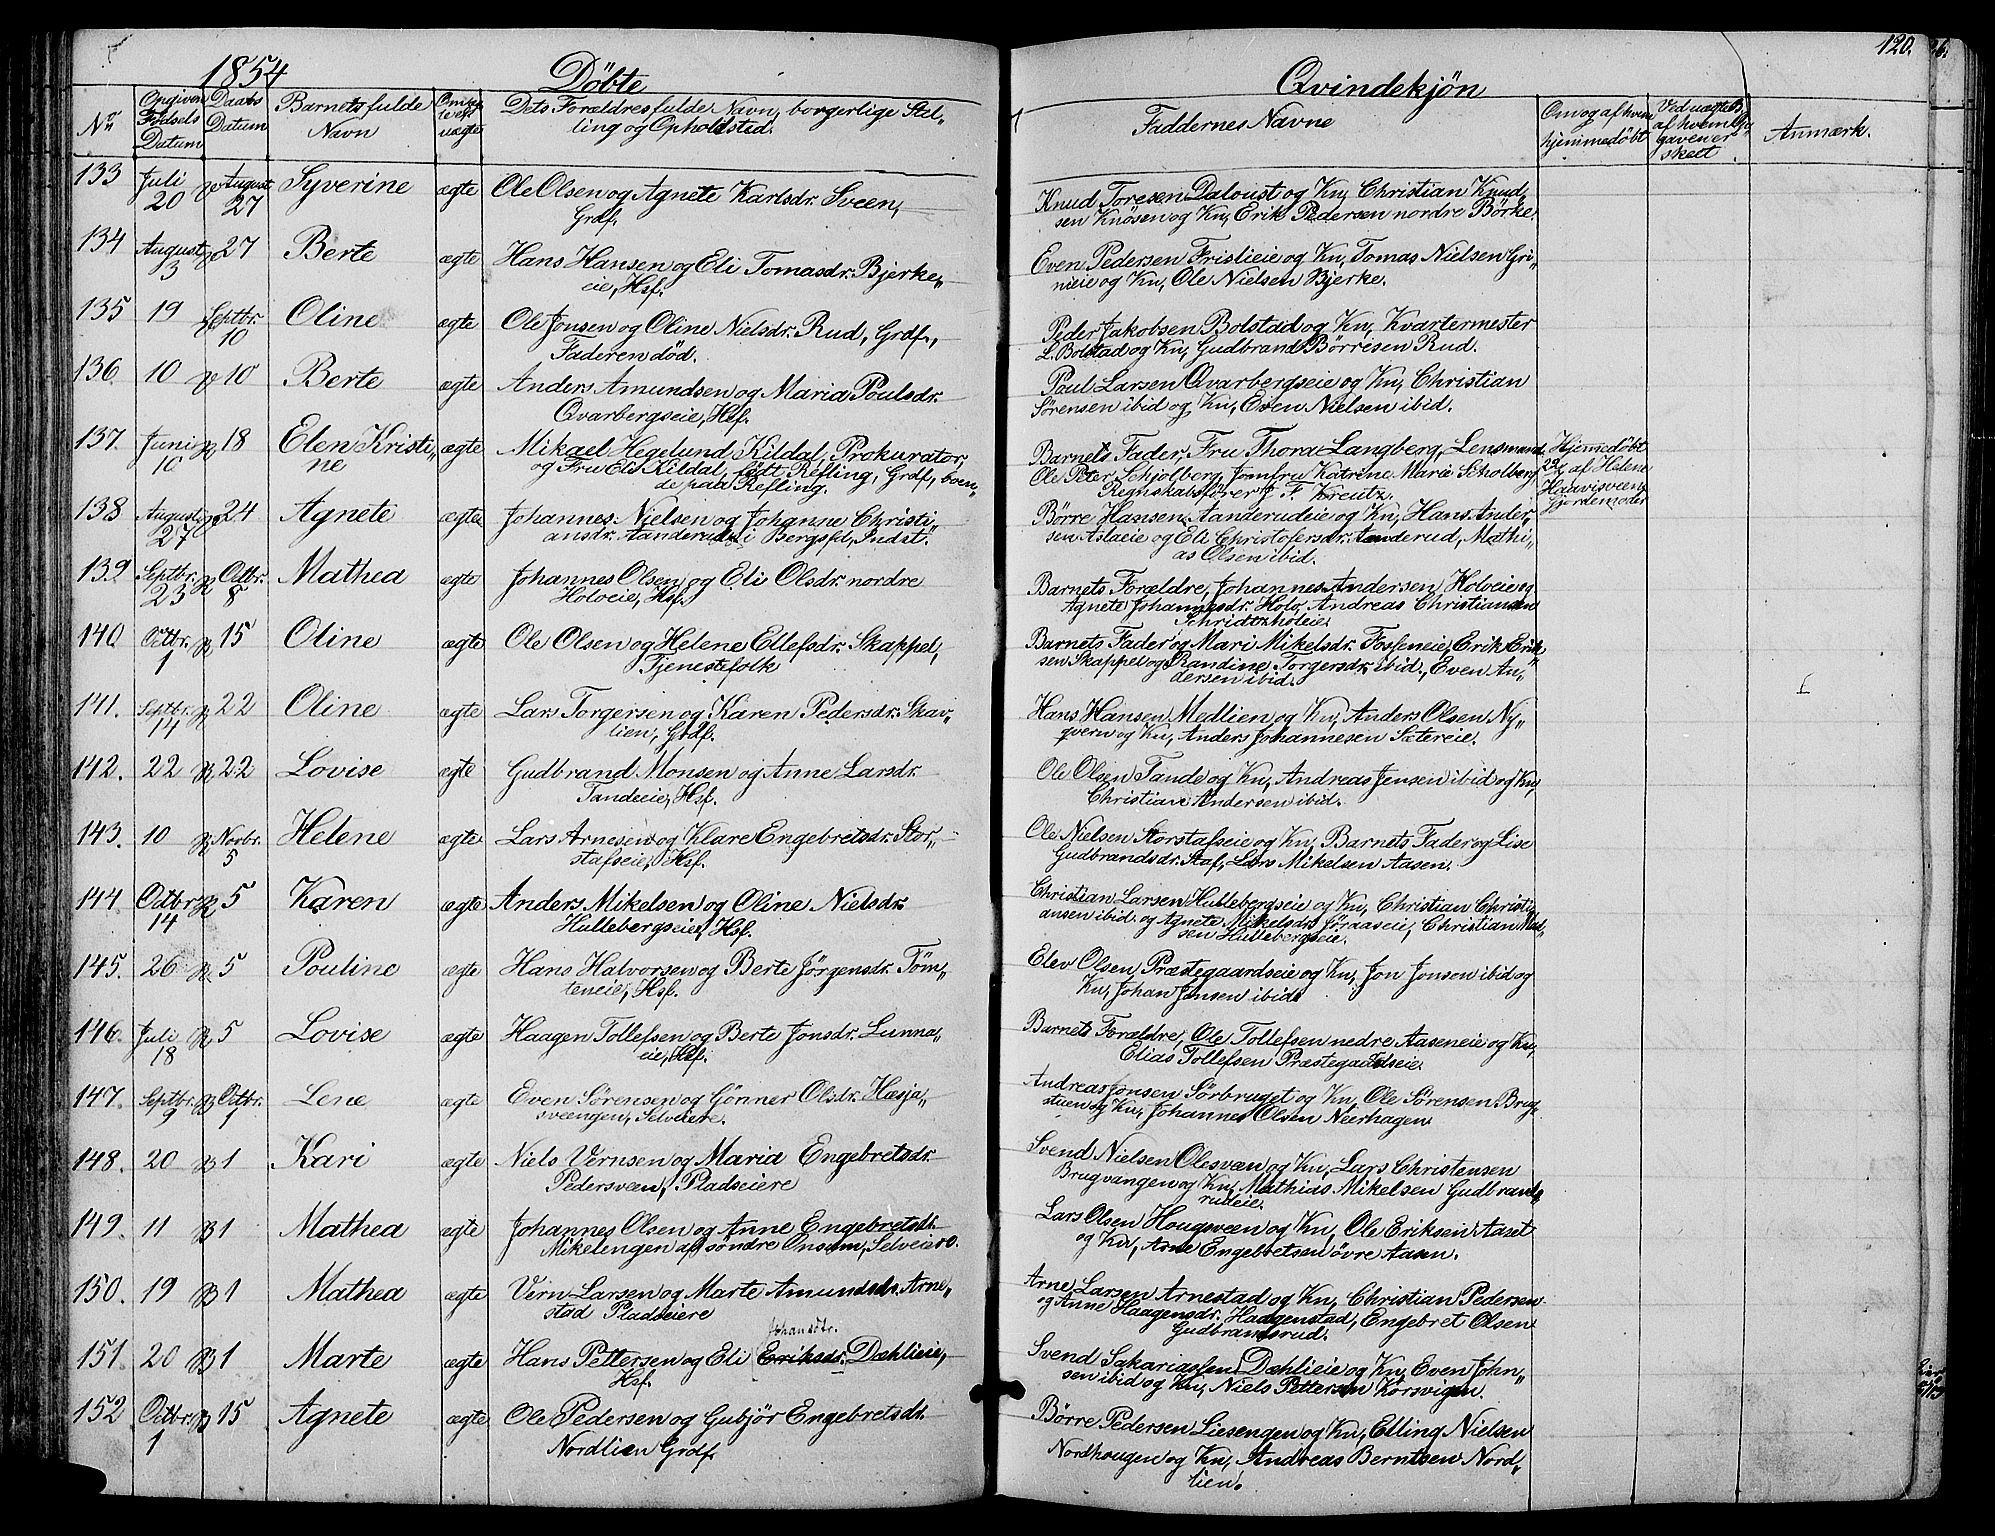 1854 Döbte Qvindekjön 120.
No Opgiven Fødsels Datum Daabs Datum Barnets fulde Navn Dets Forældres fulde Navn, borgerlige Stilling og Opholdsted. Faddernes Navne Om og af hvem hjemmedöbt Anmærk.
133 Juli 20 August 27 Syverine ægte Ole Olsen og Agnete Karlsdr. Sveen,
Grdf.
Knud Toresen Daloust og Kn, Christian Knud„
sen Knösen og Kn, Erik Pedersen nordre Börke.
134 August 3 27 Berte ægte Hans Hansen og Eli Tomasdr. Bjerke„
eie, Hsf.
Even Pedersen Fristieie og Kn, Tomas Nielsen Gri„
nieie og Kn, Ole Nielsen Bjerke.
135 19 Septbr. 10 Oline ægte Ole Jonsen og Oline Nielsdr. Rud, Grdf.,
Faderen död.
Peder Jakobsen Bolstad og Kn, Kvartermester
L. Bolstad og Kn, Gudbrand Börresen Rud.
136 10 10 Berte ægte Anders Amundsen og Maria Poulsdr.
Qvarbergseie, Hsf.
Poul Larsen Qvarbergseie og Kn, Christian
Sörensen ibid og Kn, Even Nielsen ibid.
137. Juni 10 18 Elen Kristi„
ne ægte Mikael Hegelund Kildal, Prokurator
og Fru Elis Kildal, födt Refling, Grdf, boen„
de paa Refling.
Barnets Fader, Fru Thora Langberg, Lensmand
Ole Peter Schjolberg, Jomfru Katrine Marie Scholberg
Regnskabsförer J. F. Kreutz.
Hjemmedöbt
af Helene
Haavisveen
Gjordemoder
138 August 27 24 Agnete ægte Johannes Nielsen og Johanne Christi„
ansdr. Aanderud i Bergsfd, Indst.
Börre Hansen Aanderudeie og Kn, Hans Ander„
sen Aslaeie og Eli Christofersdr. Aanderud, Mathi„
as Olsen ibid.
139 Septbr. 23 Octbr. 8 Mathea ægte Johannes Olsen og Eli Olsdr. nordre
Holoeie, Hsf.
Barnets Forældre, Johannes Andersen Holoeie og
Agnete Johannesdr. Holo, Andreas Christiansen
140 Octbr. 1 15 Oline ægte Ole Olsen og Helene Ellefsdr. Skappel,
Tjenestefolk
Barnets Fader og Mari Mikelsdr. Fosseneie, Erik Erik„
sen Skappel og Randine Torgersdr. ibid., Even An„
dersen ibid.
141. Septbr. 14 22 Oline ægte Lars Torgersen og Karen Pedersdr. Skav„
lien, Grdf.
Hans Hansen Medlien og Kn, Anders Olsen Ny„
qvern og Kn, Anders Johannesen Sætereie.
142. 22 22 Lovise ægte Gudbrand Monsen og Anne Larsdr.
Tandeeie, Hsf.
Ole Olsen Tande og Kn, Andreas Jensen ibid og Kn,
Christian Andersen ibid.
143. 10 Novbr. 5 Helene ægte Lars Arnesen og Klare Engebretsdr. Stor„
stafseie, Hsf.
Ole Nielsen Storstafseie og Kn, Barnets Fader og Lise
Gudbrandsdr. Staf, Lars Mikelsen Aasen.
144. Octbr. 14 5 Karen ægte Anders Mikelsen og Oline Nielsdr.
Hullebergseie, Hsf.
Christian Larsen Hullebergseie og Kn, Christian Christi„
ansen ibid. og Agnete Mikelsdr. Jöraaseie, Christian Mad„
sen Hullebergseie.
145. 26 5 Pouline ægte Hans Halvorsen og Berte Jörgensdr. Töm„
teneie, Hsf.
Elev Olsen Præstegaardseie og Kn, Jon Jonsen ibid og
Kn, Johan Jensen ibid.
146. Juli 18 5 Lovise ægte Haagen Tollefsen og Berte Jonsdr. Lunna„
eie, Hsf.
Barnets Forældre, Ole Tollefsen nedre Aaseneie og Kn,
Elias Tollefsen Præstegaardseie.
147. Septbr. 9 Octbr. 1 Lene ægte Even Sörensen og Gönner Olsdr. Hasja„
sveengen, Selveiere.
Andreas Jonsen Sörbruget og Kn, Ole Sörensen Brug„
stuen og Kn, Johannes Olsen Neerhagen
148. 20 1 Kari ægte Niels Vernsen og Maria Engebretsdr.
Pedersveen, Pladseiere
Svend Nielsen Olesveen og Kn, Lars Christensen
Brugvangen og Kn, Mathias Mikelsen Gudbrands„
rudeie.
149. 11 1 Mathea ægte Johannes Olsen og Anne Engebretsdr.
Mikelengen af söndre Onsum, Selveiere.
Lars Olsen Hougsveen og Kn, Ole Eriksen Aaset
og Kn, Arne Engebretsen övre Aasen.
150. 19 1 Mathea ægte Vern Larsen og Marte Amundsdr. Arne„
stad Pladseiere
Arne Larsen Arnestad og Kn, Christian Pedersen
og Anne Haagensdr. Haagenstad, Engebret Olsen
Gudbrandsrud.
151. 20 1 Marte ægte Hans Pettersen og Eli Eriksdr. Johansdtr. Dæhlieie,
Hsf.
Svend Sakariassen Dæhlieie og Kn, Even John„
sen ibid og Kn, Niels Pettersen Korsvigen.
152 Octbr. 1 15 Agnete ægte Ole Pedersen og Gubjör Engebretsdr.
Nordlien Grdf.
Börre Pedersen Liesengen og Kn, Elling Nielsen
Nordhougen og Kn, Andreas Berntsen Nord„
lien.